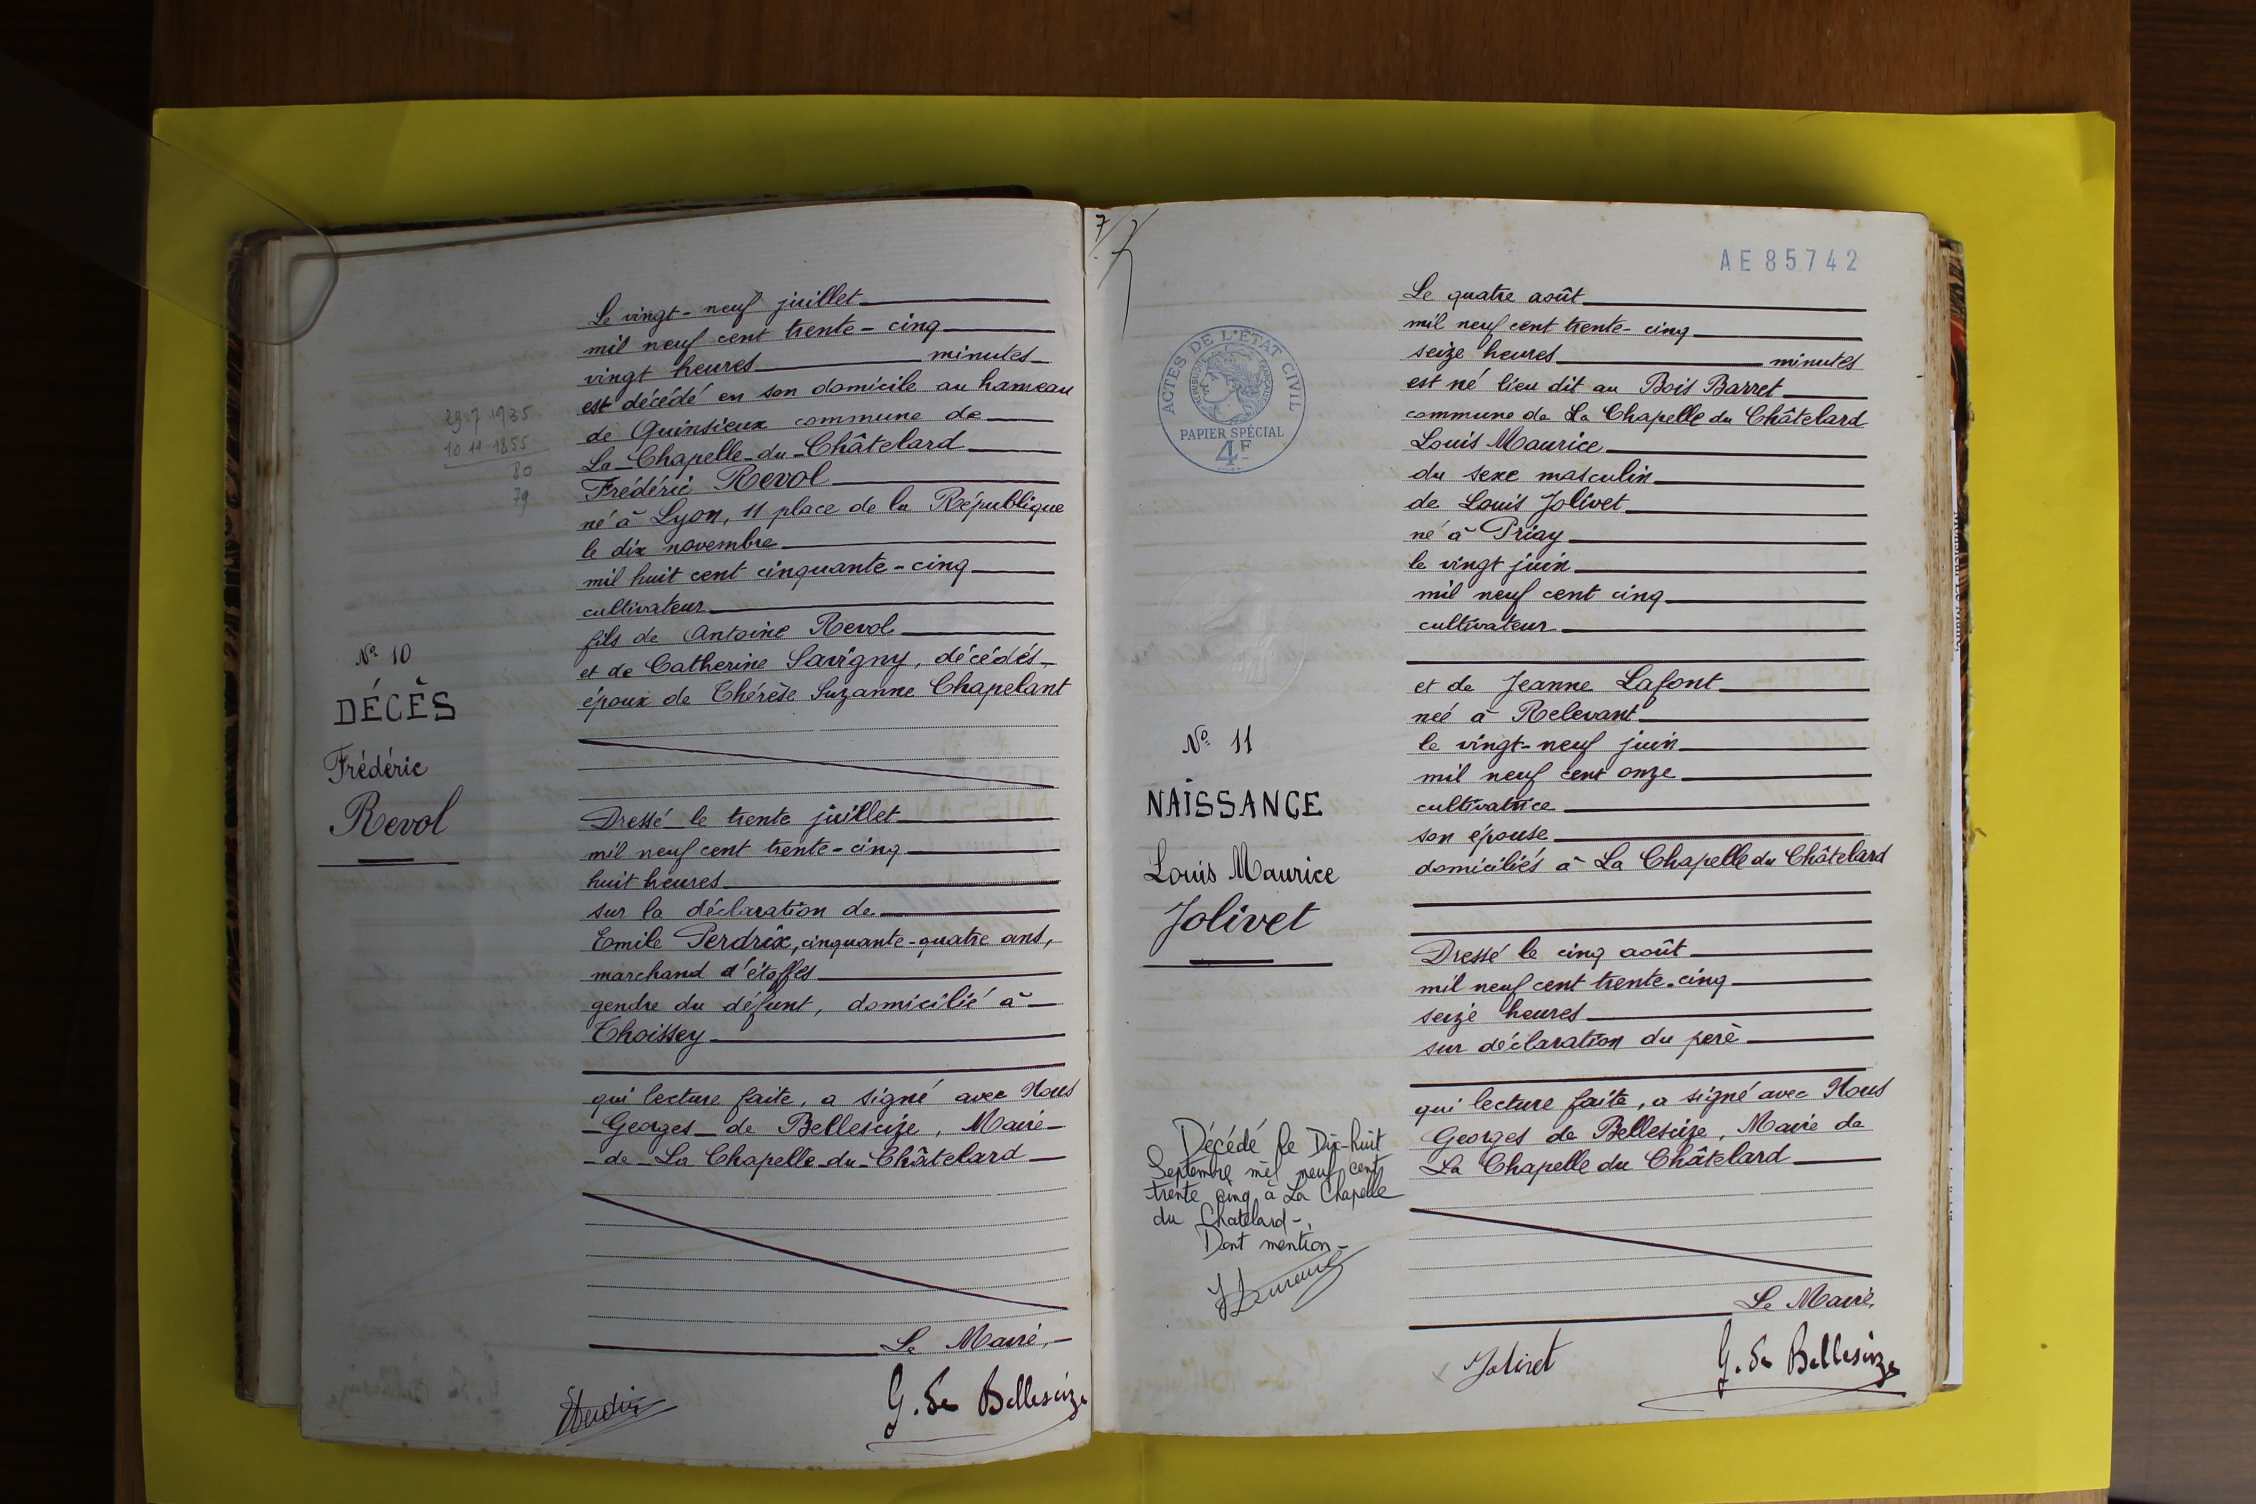 29-7 1935
10 11 1855
80
79
N° 10
DÉCÈS
Frédéric
Revol
Le vingt-neuf juillet
mil neuf cent trente-cinq
vingt heures minutes
est décédé en son domicile au hameau
de Quinsieux commune de
La-Chapelle-du-Châtelard
Frédéric Revol
né à Lyon, 11 place de la République
le dix novembre
mil huit cent cinquante-cinq
cultivateur
fils de Antoine Revol
et de Catherine Savigny, décédés
époux de Thérèse Suzanne Chapelant
Dressé le trente juillet
mil neuf cent trente-cinq
huit heures
sur la déclaration de
Emile Perdrix, cinquante-quatre ans,
marchand d'étoffes
gendre du défunt, domicilié à
Thoissey
qui lecture faite, a signé avec Nous
Georges de Bellescize, Maire
de La Chapelle-du-Châtelard
Le Maire,
G. de Bellescize
7
AE 85742
ACTES DE L'ÉTAT CIVIL
PAPIER SPÉCIAL
4F
N° 11
NAISSANCE
Louis Maurice
Jolivet
Décédé le Dix-huit
Septembre mil neuf cent
trente cinq à La Chapelle
du Chatelard-
Dont mention-
Le quatre août
mil neuf cent trente-cinq
seize heures minutes
est né lieu dit au Bois Barret
commune de La Chapelle du Châtelard
Louis Maurice
du sexe masculin
de Louis Jolivet
né à Priay
le vingt juin
mil neuf cent cinq
cultivateur
et de Jeanne Lafont
neé à Relevant
le vingt-neuf juin
mil neuf cent onze
cultivatrice
son épouse
domiciliés à La Chapelle du Châtelard
Dressé le cinq août
mil neuf cent trente-cinq
seize heures
sur déclaration du père
qui lecture faite, a signé avec Nous
Georges de Bellescize, Maire de
La Chapelle du Châtelard
Le Maire,
Jolivet
G. de Bellescize